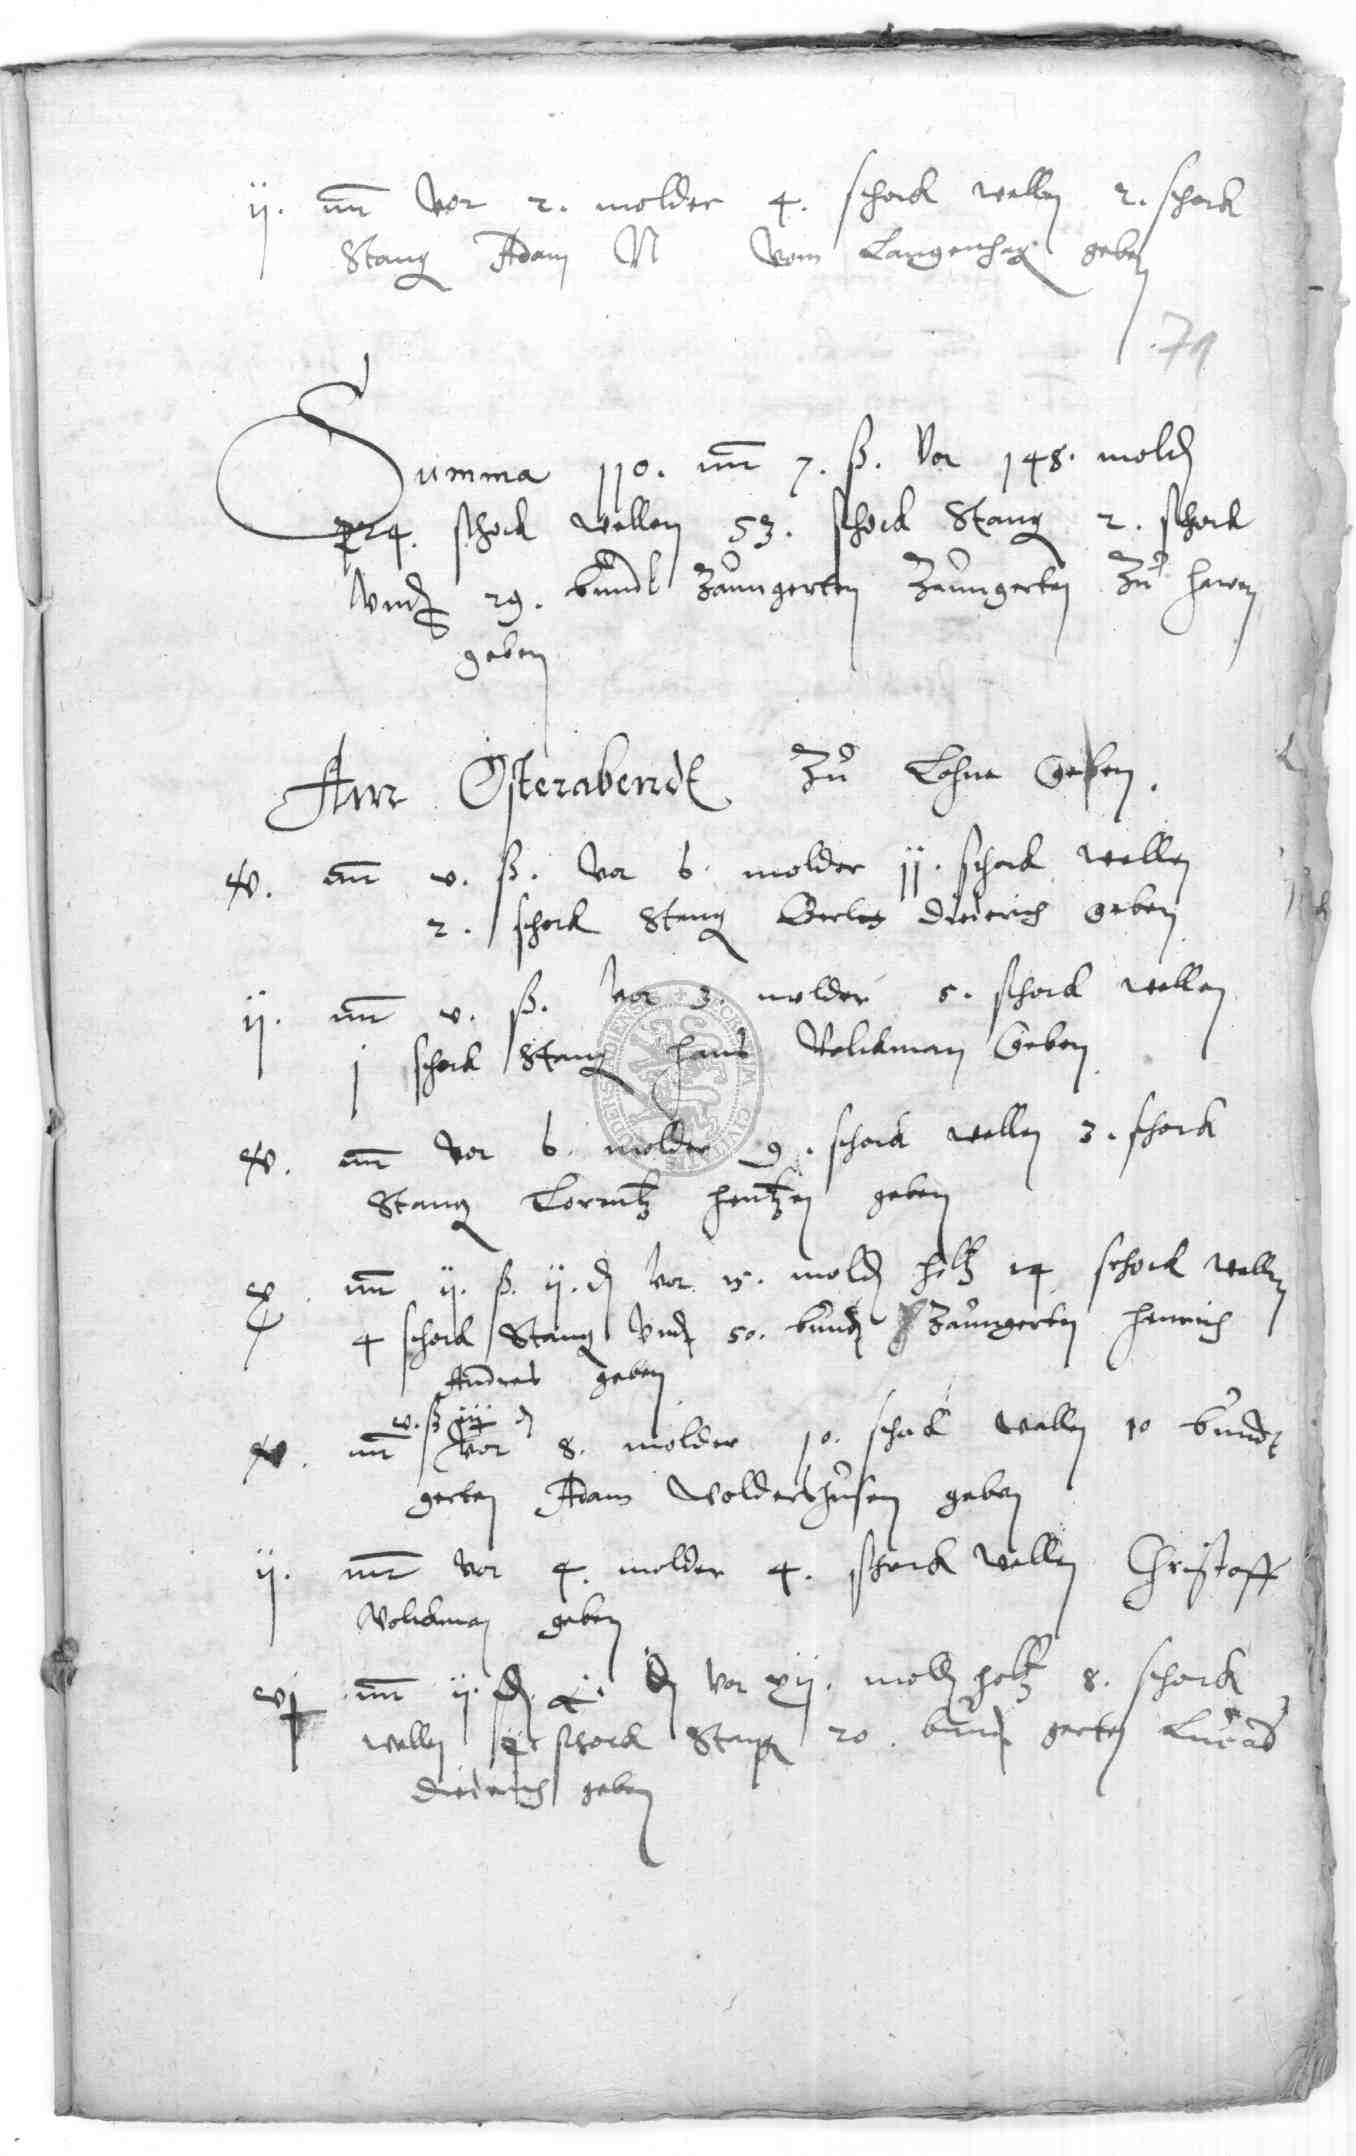 ij. mr vor 2. molder 4. schock wellen 2. schock
Stang Adam N vom Langenhag geben
79
Summa 110. mr 7. ß. vor 148. mold
224. schock wellen 53. schock Stang 2. schock
vnd 29. bundt Zaungerten Zaungerten Zu hawen
geben
Am Osterabendt Zu Lohne Geben.
iv. mr v. ß. vor 6. molder 11. schock wellen
2. schock Stang Diederich Geben
ij. mr v. ß. vor 3. molder 5. schock wellen
j schock Stang Hans Volckman Geben
iv. mr vor 6. molder 9. schock wellen 3. schock
Stang Lorentz Hentzen geben
X. mr ij. ß. ij. d vor 15. mold holtz 14 schock wellen
4 schock Stang vnd 50. bund Zaungerten Henrich
Andreas geben
v. ß iij d
iv. mr vor 8. molder 10. schock wellen 10 bundt
gerten Adam Woldershusen geben
ij. mr vor 4. molder 4. schock wellen Christoff
Volckman geben
vj mr ij. vor xij. mold holtz 8. schock
wellen schock Stang 20. bund gerten Lucas
Diederich geben